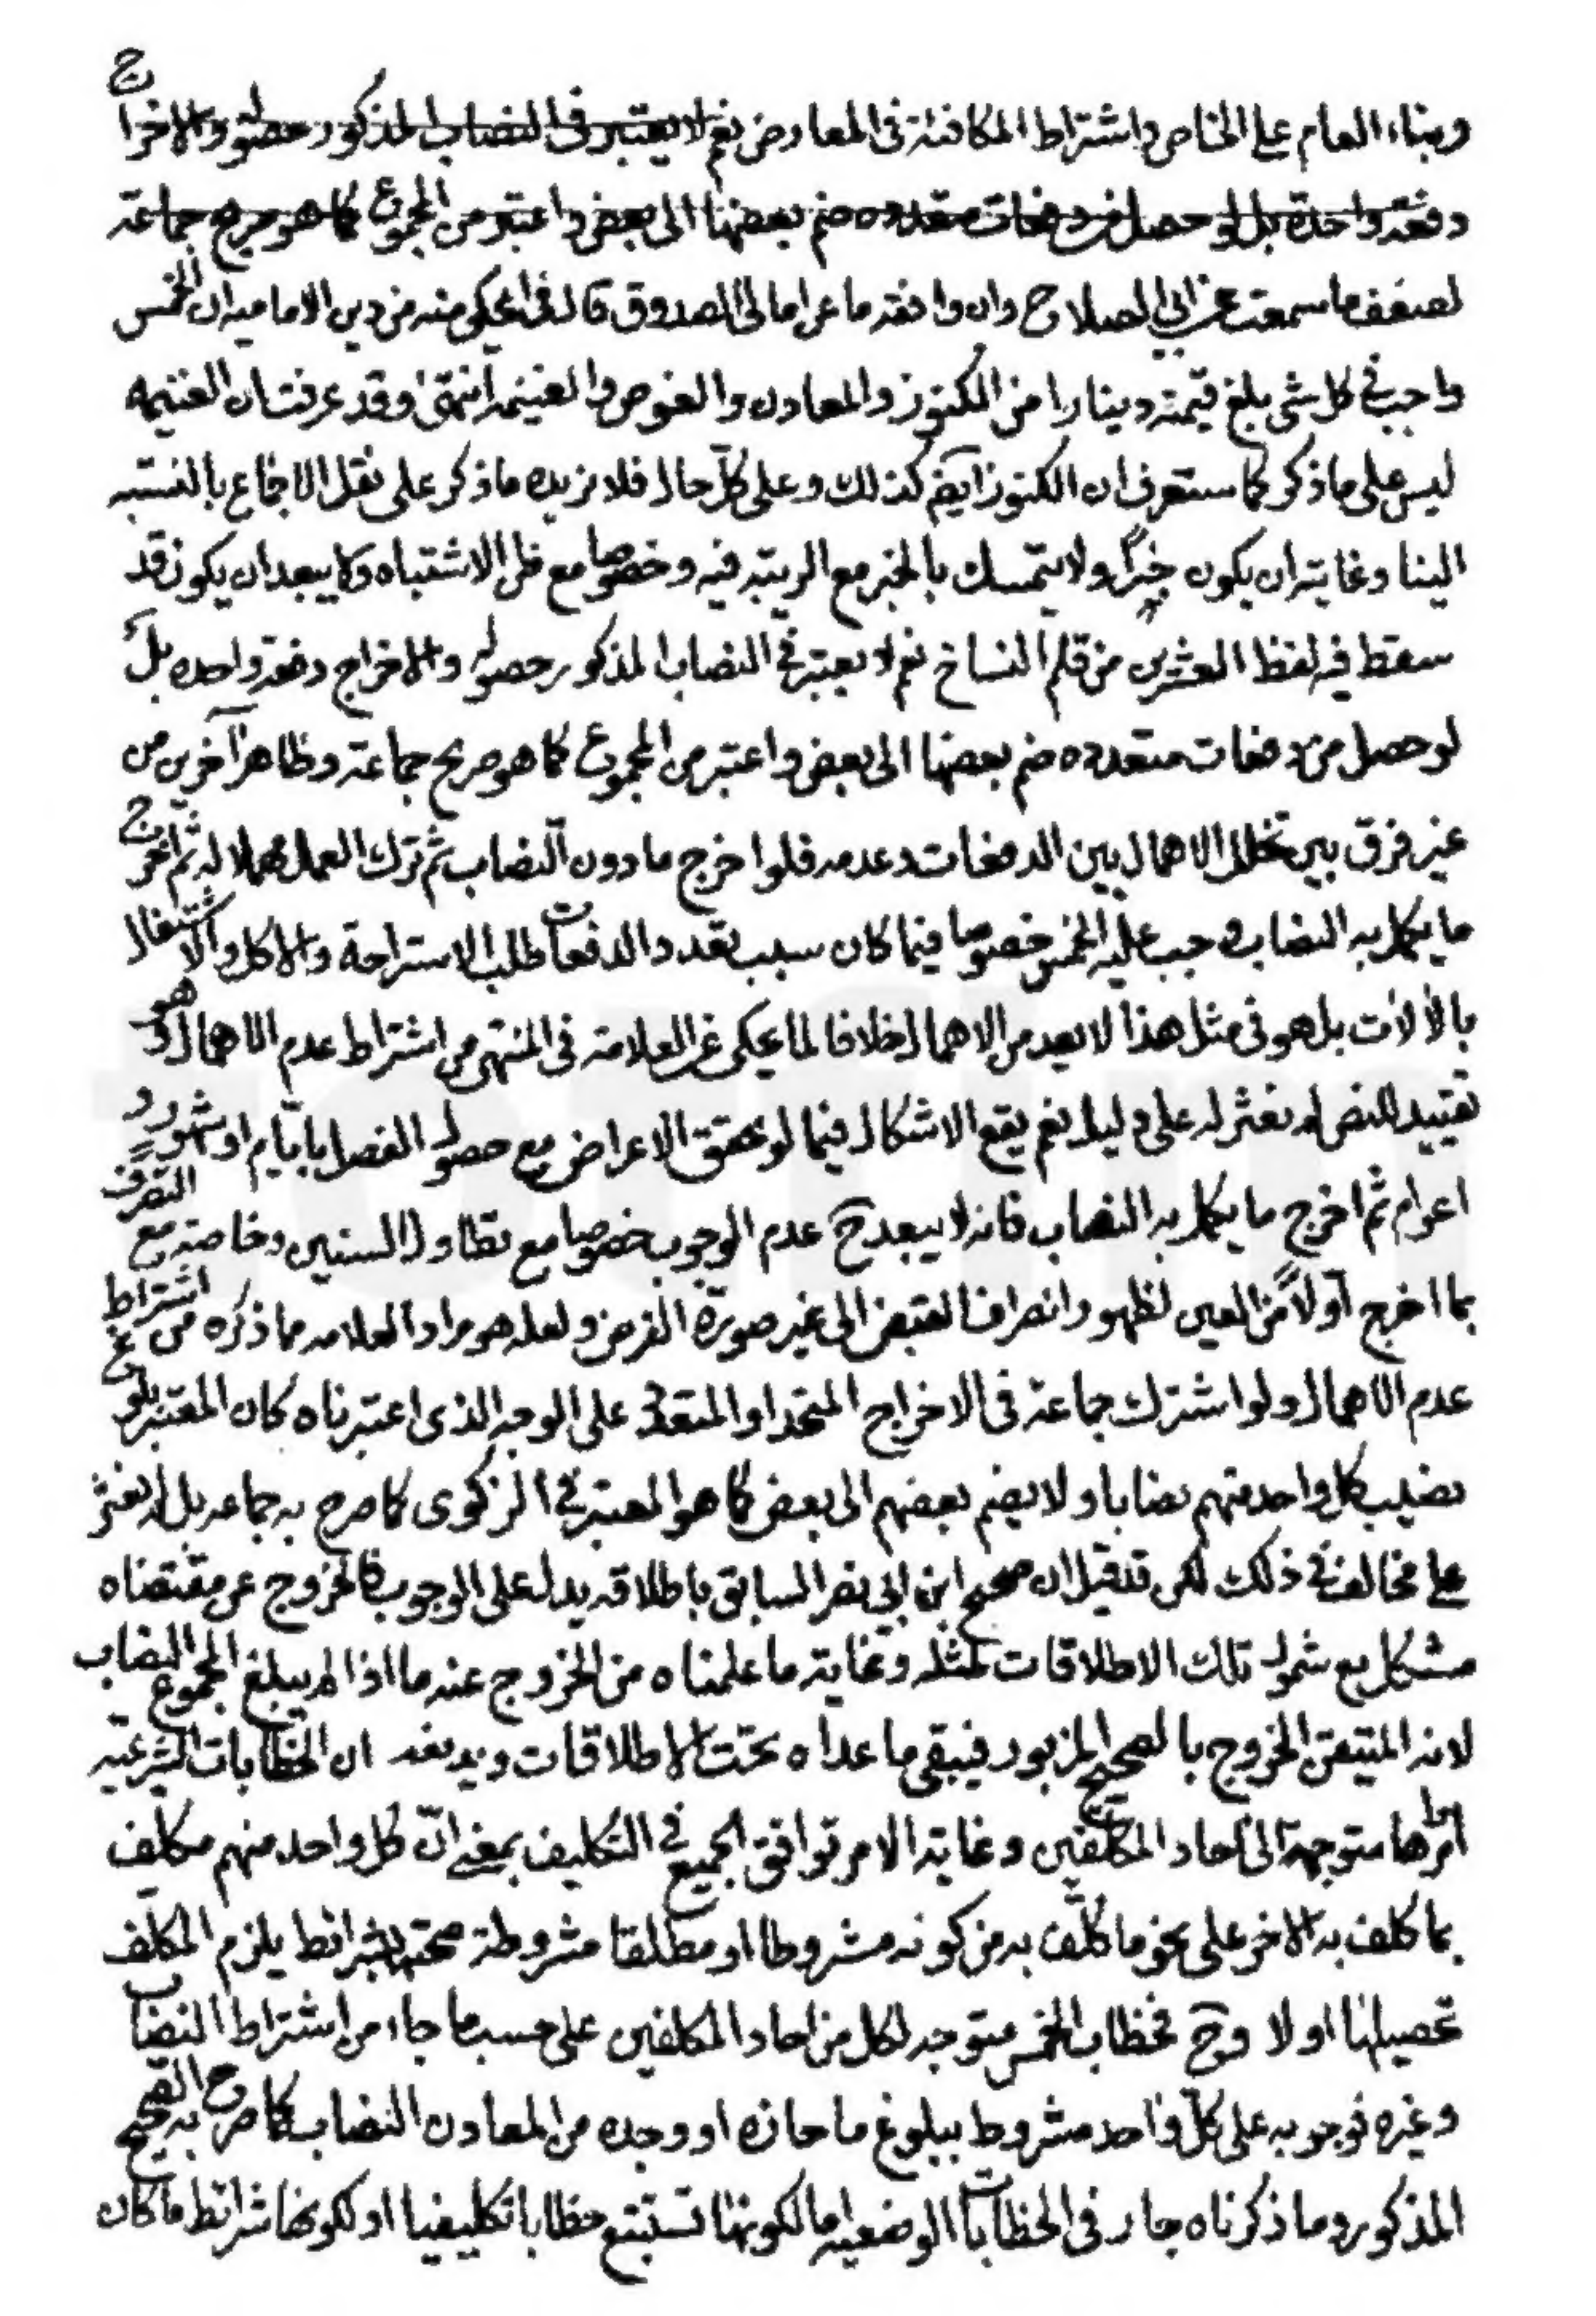 وبناء العام على الخاص واشتراط المكافئة في المعارض نعم لا يعتبر في النصاب المذكور حصوله والاخراج
دفعة واحدة بل لو حصل من دفعات متعدده ضم بعضها الى بعض واعتبر من المجموع كما هو صريح جماعة
لضعف ما سمعت عن ابي الصلاح وان وافقه ما عن امالى الصدوق قال في المحكي منه من دين الاماميه ان الخمس
واجب في كل شئ بلغ قيمته دينارا من الكنوز والمعادن والغوص والغنيمة انتهى وقد عرفت ان الغنيمه
ليس على ما ذكر كما ستعرف ان الكنوز ايضم كذلك وعلى كل حال فلا نزيده ما ذكر على نقل الاجماع بالنسبه
الينا وغايته ان يكون خبرًا ولا يتمسك بالخبر مع الريبة فيه وخصوصا مع ظن الاشتباه ولا يبعد ان يكون قد
سقط فيه لفظ العشرين من قلم النساخ نعم لا يعتبر في النصاب المذكور حصوله والاخراج دفعة واحده بل
لو حصل من دفعات متعدده ضم بعضها الى بعض واعتبر من المجموع كما هو صريح جماعة وظاهر آخرين من
غير فرق بين تخلل الاهمال بين الدفعات وعدمه فلو اخرج ما دون النصاب ثم ترك العمل مهملا له ثم اخرج
ما يكمل به النصاب وجب عليه الخمس خصوصا فيما كان سبب تعدد الدفعات طلب الاستراحة والاكل والاشتغال
بالآلات بل هو في مثل هذا لا يعد من الاهمال خلافا لما يحكى عن العلامة في المنتهى من اشتراط عدم الاهمال وهو
تقييد للنص لم نعثر له على دليل نعم يقع الاشكال فيما لو تحقق الاعراض مع حصول الفصل بايّام او شهور و
اعوام ثم اخرج ما يكمل به النصاب فانه لا يبعد ح عدم الوجوب خصوصا مع تطاول السنين وخاصة مع التصرف
بما اخرج آولاً من العين لظهور انصراف النص الى غير صورة الفرض ولعله هو مراد العلامه مما ذكره من اشتراط
عدم الاهمال ولو اشترك جماعة في الاخراج المتحد او المتعدد على الوجه الذى اعتبرناه كان المعتبر بلوغ
نصيب كل واحد منهم نصابا ولا يضم بعضهم الى بعض كما هو المعتبر في الزكوى كما صرح به جماعه بل لم نعثر
على مخالف في ذلك لكن قد قيل ان صحيح ابن ابي نصر السابق باطلاقه يدل على الوجوب فالخروج عن مقتضاه
مشكل مع شمول تلك الاطلاقات لمثله وغاية ما علمناه من الخروج عنه ما اذا لم يبلغ المجموع النصاب
لانه المتيقن الخروج بالصحيح المزبور فيبقى ما عداه تحت الاطلاقات ويدفعه ان الخطابات الشرعيّه
متوجهة الى آحاد المكلفين وغاية الامر توافق الجميع في التكليف بمعنى انّ كل واحد منهم مكلف
بما كلف به الاخر على نحو ما كلّف به من كونه مشروطا او مطلقا مشروطة صحته بشرائط يلزم المكلف
تحصيلها او لا وح فخطاب الخمس متوجه لكل من احاد المكلفين على حسب ما جاء من اشتراط النصاب
وغيره فوجوبه على كلّ واحد مشروط ببلوغ ما حازه او وجده من المعادن النصاب كما صرح به الصحيح
المذكور وما ذكرناه جار في الخطابات الوضعيه اما لكونها تستتبع خطابا تكليفيا او لكونها شرائط ما كان